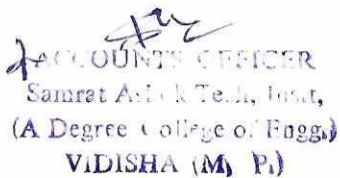 ACCOUNTS OFFICER
Samrat Ashok Tech. Inst,
(A Degree College of Engg.)
VIDISHA (M. P.)